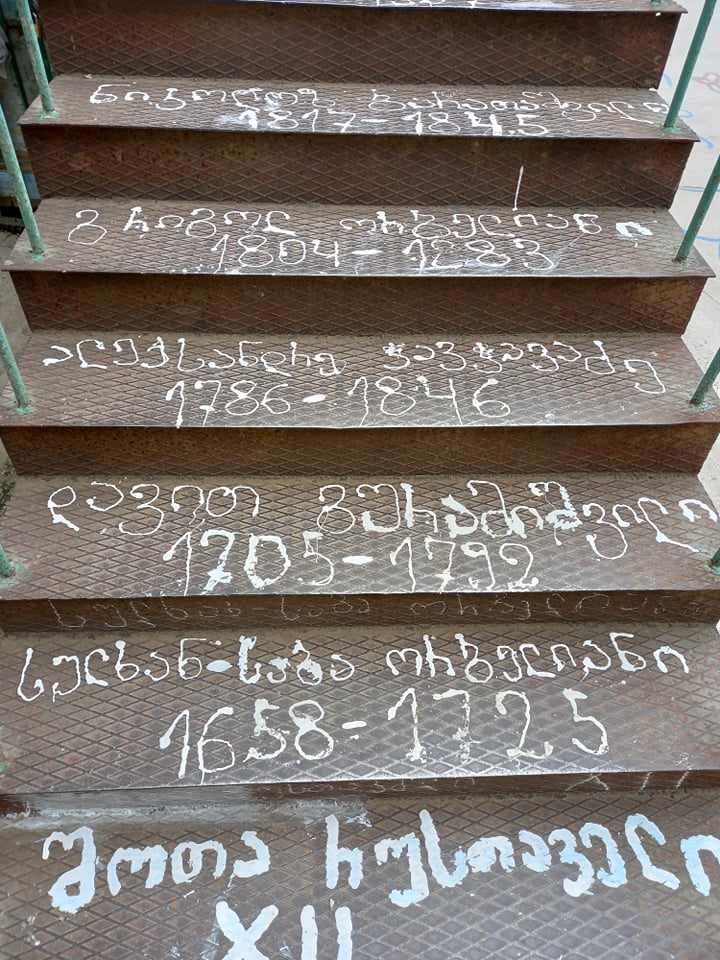 ნიკოლოზ ბარათაშვილი
1817-1845
გრიგოლ ორბელიანი
1804-1883
ალექსანდრე ჭავჭავაძე
1786-1846
დავით გურამიშვილი
1705-1792
სულხან-საბა ორბელიანი
1658-1725
შოთა რუსთაველი
XII